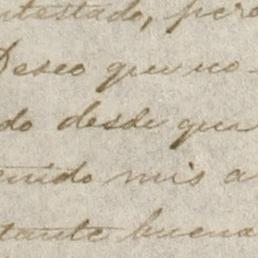 ntestado, pero
Deseo que no
do desde que
enido mis a
tante buena